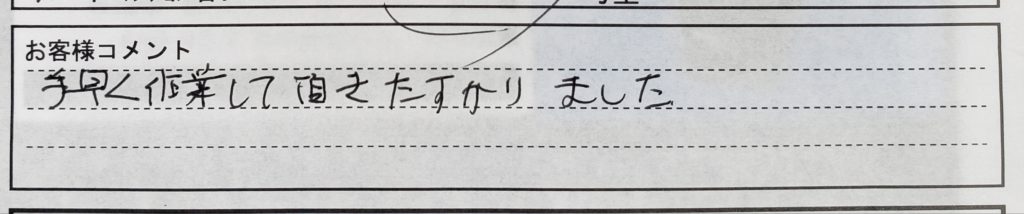 お客様コメント
手早く作業して頂きたすかりました